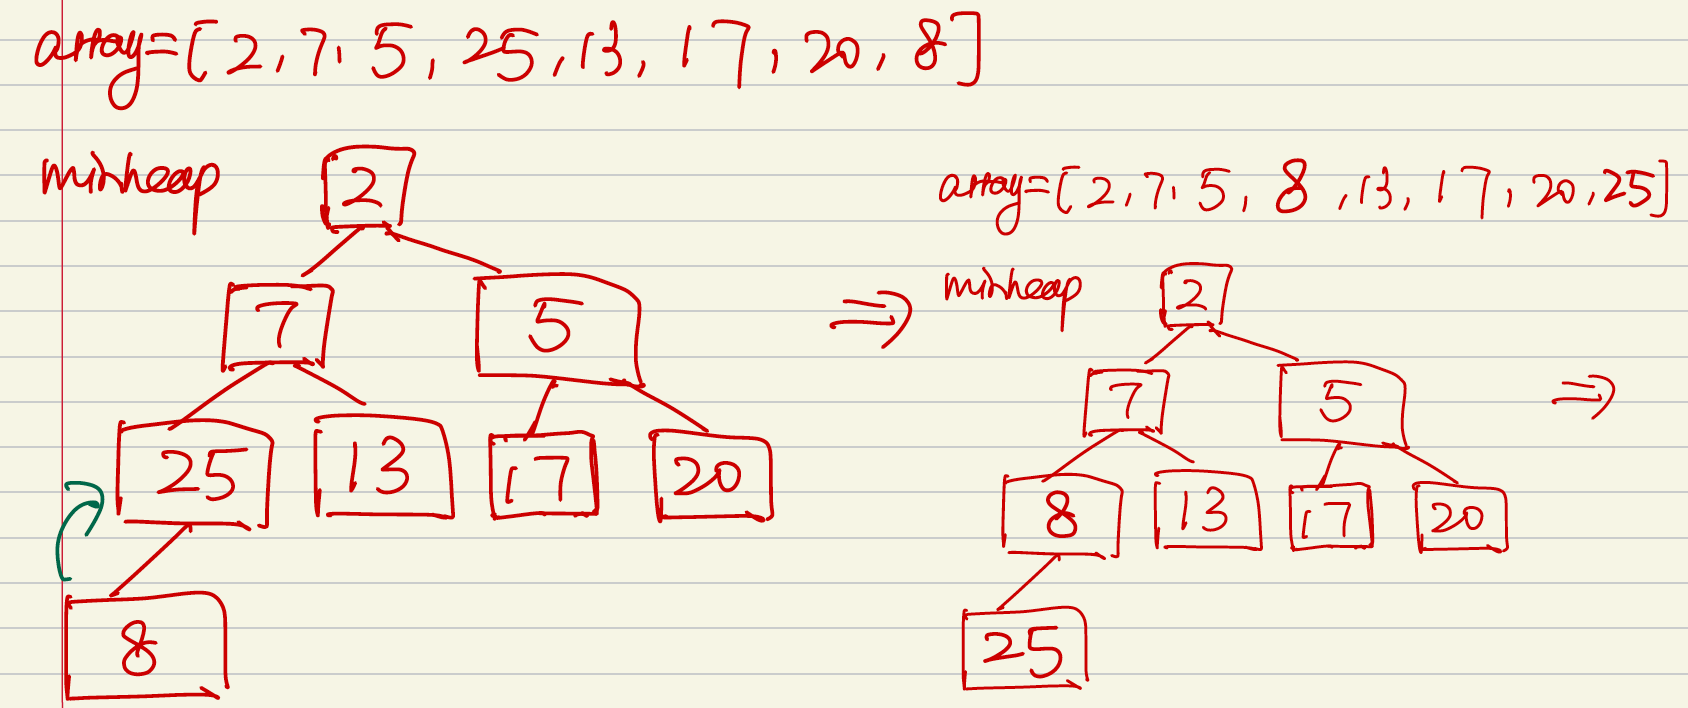 array=[2,7,5,25,13,17,20,8]
minheap
2
7 5
25 13 17 20
8
⇒
array=[2,7,5,8,13,17,20,25]
minheap
2
7 5
8 13 17 20
25
⇒